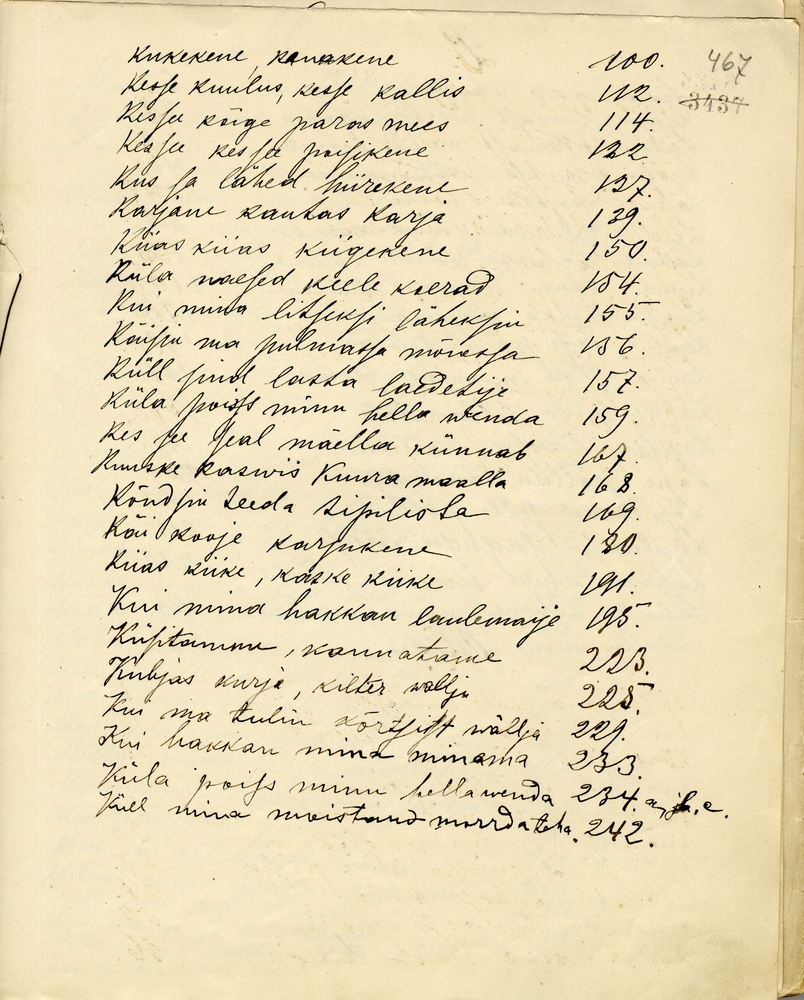 Kukekene, kanakene 100.
467
Kesse kuulus, kesse kallis 112.
3434
Kes see kõige paras mees 114.
Kes see kes see poisikene 122.
Kus sa lähed hiirekene 127.
Karjane kautas karja 139.
Kiias kiias kiigekene 150.
Küla naesed keele koerad 154.
Kui mina litseksi läheksin 155.
Käisin ma pulmassa mõnessa 156.
Küll sind lasta laedetije 157.
Küla poiss minu hella wenda 159.
Kes see seal mäella künnab 167.
Kuuske kaswis Kuura maalla 168.
Kõndsin teeda sipilista 169.
Käi kooje karjukene 180.
Kiias kiike, kaske kiike 191.
Kui mina hakkan laulemaije 195.
Küsitamme, kannatame 223.
Kubjas kurja, kilter wallju 225.
Kui ma tulin kõrtsist wälja 229.
Kui hakkan mina minama 233.
Küla poiss minu hella wenda 234. a, jb. c.
Küll mina moistaud morrda teha. 242.